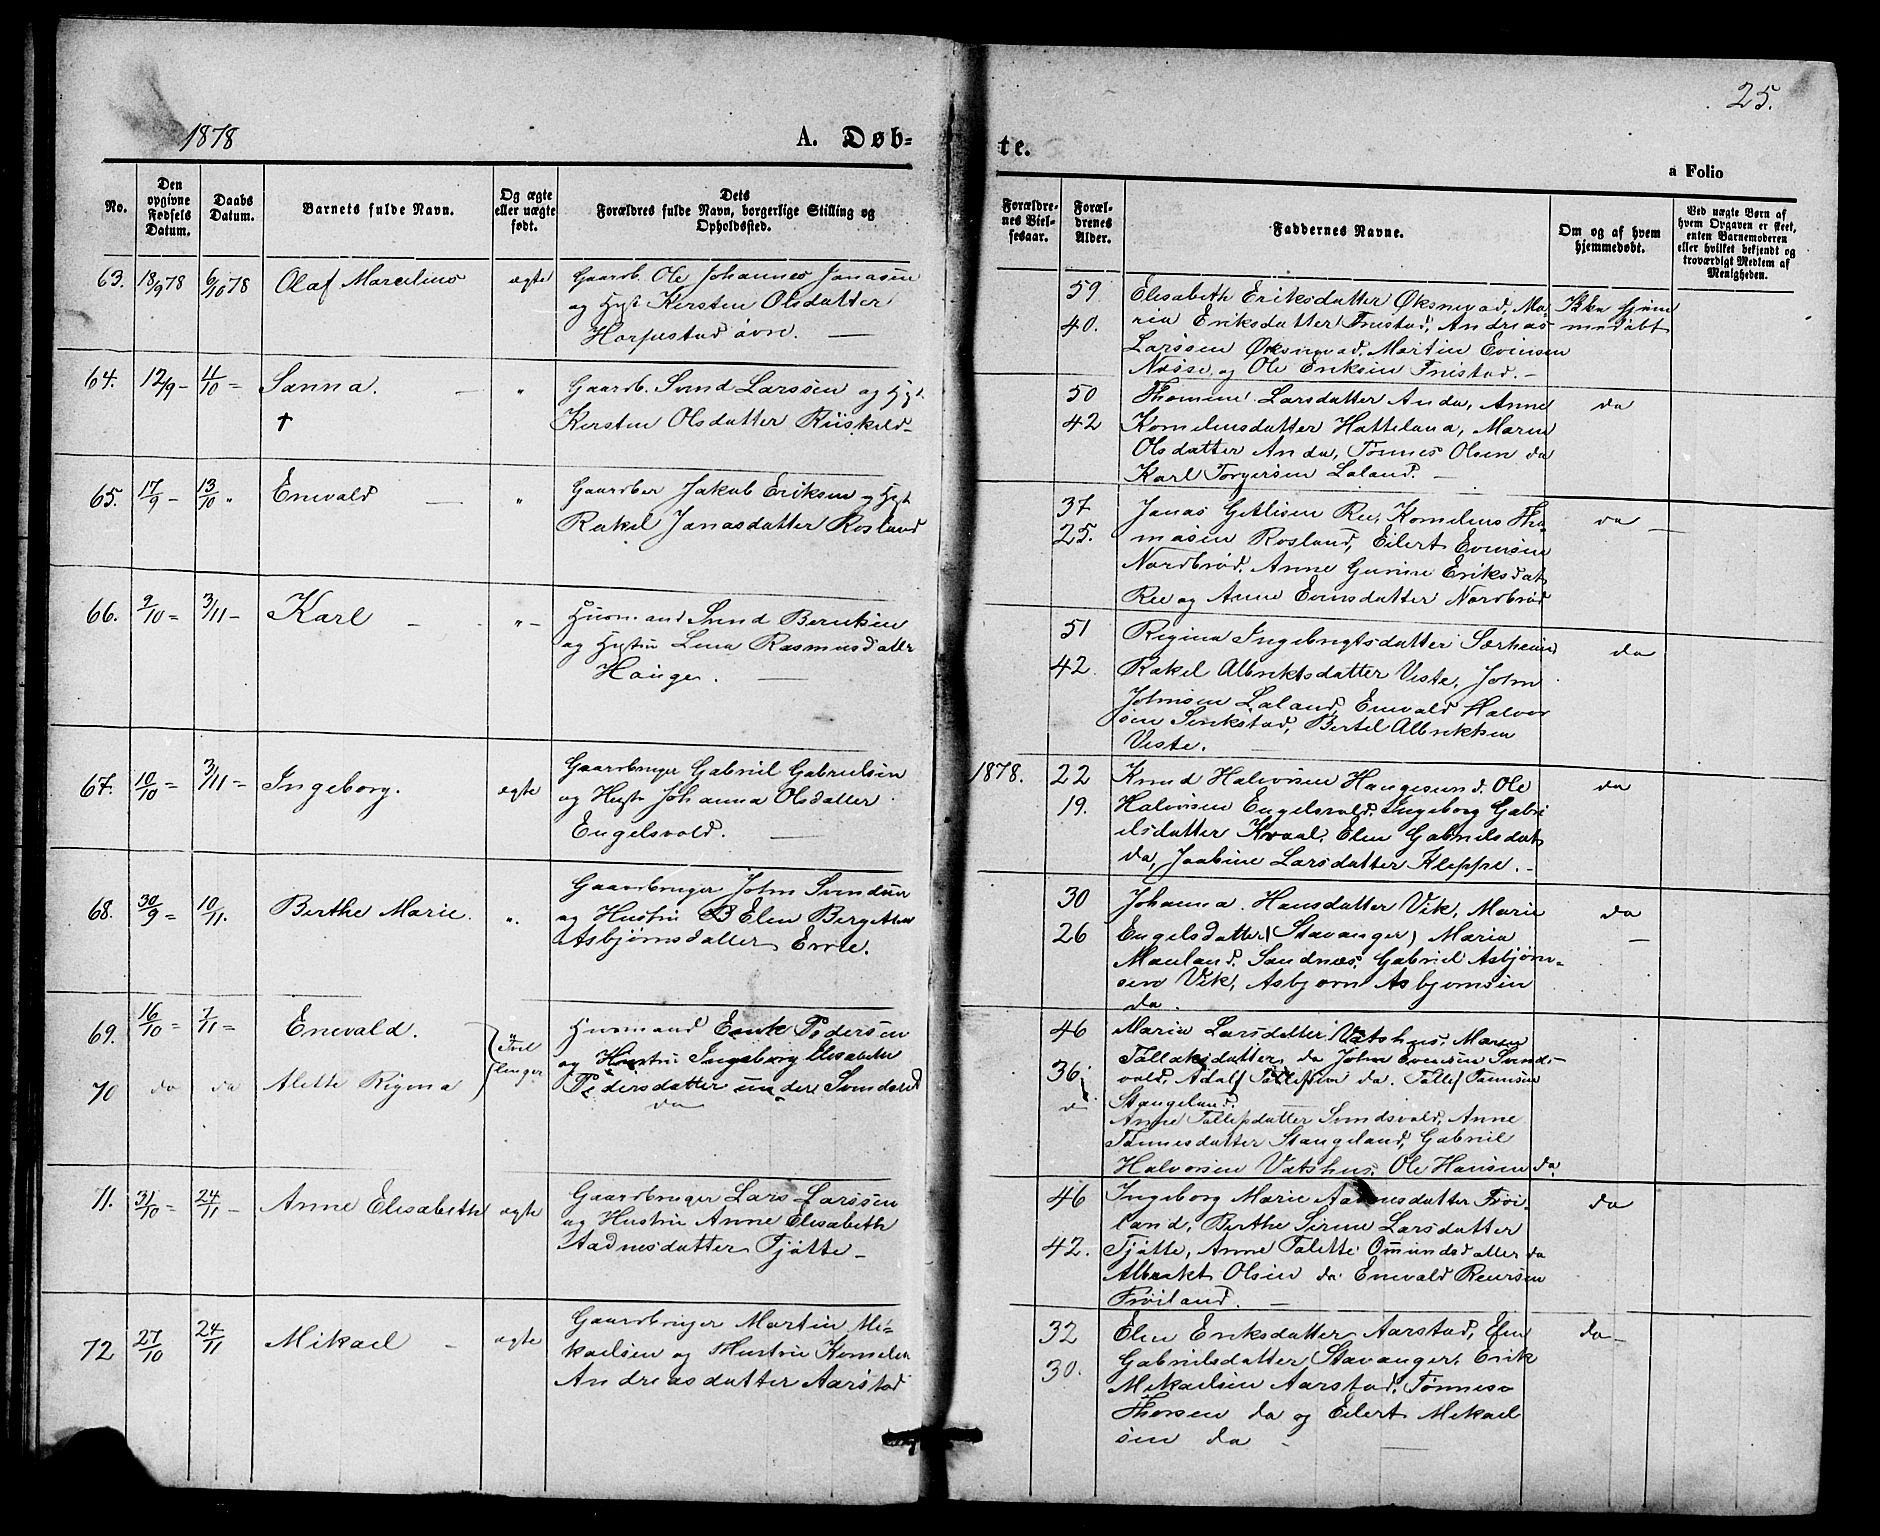 1878
A. Døb-
te.
25.
a Folio
No.
Den opgivne Fødsels Datum.
Daabs Datum.
Barnets fulde Navn.
Og ægte eller uægte født.
Dets
Forældres fulde Navn, borgerlige Stilling og
Opholdssted.
Forældre-
nes Viel-
sesaar.
Foræl-
drenes
Alder.
Faddernes Navne.
Om og af hvem
hjemmedøbt.
Ved uægte Børn af
hvem Opgaven er skeet,
enten Barnemoderen
eller hvilket bekjendt og
troværdigt Medlem af
Menigheden.
63. 18/9 78 6/10 78 Olaf Marcelius ægte
Gaardb. Ole Johannes Janasen
og Hust Kersten Olsdatter
Harpestad øvre.
59
40.
Elisabeth Eriksdatter Øksnevad, Ma-
ria Eriksdatter Friestad, Andreas
Larssen Øksnevad, Martin Evensen
Næsse, og Ole Eriksen Friestad.
Ikke hjem
medøbt
64. 12/9 - 11/10 = Sanna. "
†
Gaardb. Svend Larssen og Hust
Kersten Olsdatter
50
42
Thomine Larsdatter Anda, Anne
Kornelensdatter Hatteland, Maren
Olsdatter Anda, Tønnes Olsen da
Karl Torgersen Laland.
da
65. 17/9 - 13/10 " Enevald "
Gaardber Jakob Eriksen og Hust
Rakel Janasdatter Rosland
37
25.
Janas Getlesen Ree, Kornelius Tho-
masen Rosland, Eilert Evensen
Nordbrød, Anne Gurine Eriksdat
Ree og Anne Evensdatter Nordbrød
da
66. 2/10 = 3/11 - Karl "
Husmand Svend Berntsen
og Hustru Lena Rasmusdatter
Hauge.
51
42.
Regina Ingebrigtsdatter Særheim
Rakel Albriktsdatter Veste, John
Johnsen Laland, Enevald Halvor
sen Serikstad, Bertel Albriktsen
Veste.
da
67. 10/10 = 3/11 = Ingeborg. ægte
Gaardbruger Gabriel Gabrielsen
og Hustr Johanna Olsdatter
Engelsvold.
1878. 22
19.
Knud Halvorsen Haugesund. Ole
Halvorsen Engelsvold, Ingeborg Gabri
elsdatter Kvaal, Elen Gabrielsdat
da, Jaabine Larsdatter Kleppe.
da
68. 30/9 = 10/11. Berthe Marie. "
Gaardbruger John Svendsen
og Hustru Elen Bergitha
Asbjørnsdatter Erve.
30
26
Johanna Hansdatter Vik, Marie
Engelsdatter (Stavanger) Maria
Mauland, Sandnæs, Gabriel Asbjørn-
sen Vik, Asbjørn Asbjørnsen
da
da
69. 16/10 = 7/11 = Enevald.
70 da da Alette Regina
Tvil
linger
Husmand Erik Pedersen
og Hustru Ingeborg Elisabeth
Pedersdatter under Svendsvold
da
46
36.
da
Maria Larsdatter Vatshus, Maren
Tallaksdatter da John Evensen Svends-
vold, Adolf Tallefsen da. Tallef Tønnesen
Stangeland.
Anne Tallefsdatter Svendsvold, Anne
Tønnesdatter Stangeland, Gabriel
Halvorsen Vatshus. Ole Hansen da.
71. 31/10 = 24/11 - Anne Elisabeth ægte
Gaardbruger Lars Larssen
og Hustru Anne Elisabeth
Aadnesdatter Tjøtte
46
42.
Ingeborg Marie Aadnesdatter Frøi-
land, Berthe Serine Larsdatter
Tjøtte, Anne Talette Omundsdatter da
Albrekt Olsen da Enevald Reiersen
Frøiland.
da
72 27/10 24/11 Mikael ægte
Gaardbruger Martin Mi-
kaelsen og Hustru Kornelia
Andreasdatter Aarstad
32
30.
Elen Eriksdatter Aarstad, Elen
Gabrielsdatter Stavanger, Erik
Mikaelsen Aarstad, Tønnes
Thorsen da og Eilert Mikael
sen da
da